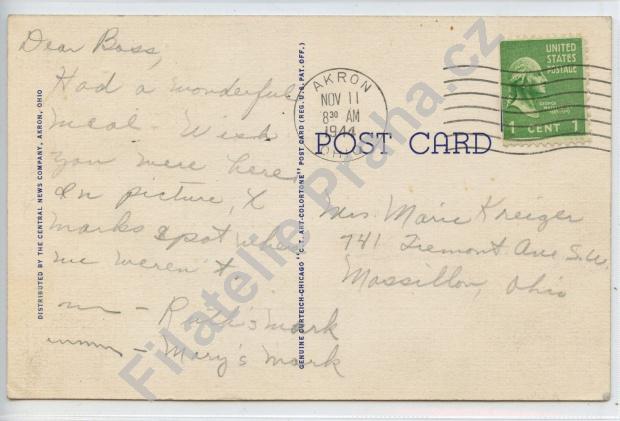 Dear Boss,
Had a wonderful
meal. Wish
you were here.
In picture, X
marks spot where
we weren't
— Ruth's mark
— Mary's mark
DISTRIBUTED BY THE CENTRAL NEWS COMPANY, AKRON, OHIO
GENUINE CURTEICH-CHICAGO "C.T. ART-COLORTONE" POST CARD (REG. U.S. PAT. OFF.)
AKRON
NOV 11
8 30 AM
1944
OHIO
UNITED
STATES
POSTAGE
GEORGE
1 CENT 1
POST CARD
Mrs. Marie Kreiger
741 Tremont Ave S.W.
Massillon, Ohio
Filatelie Praha.cz